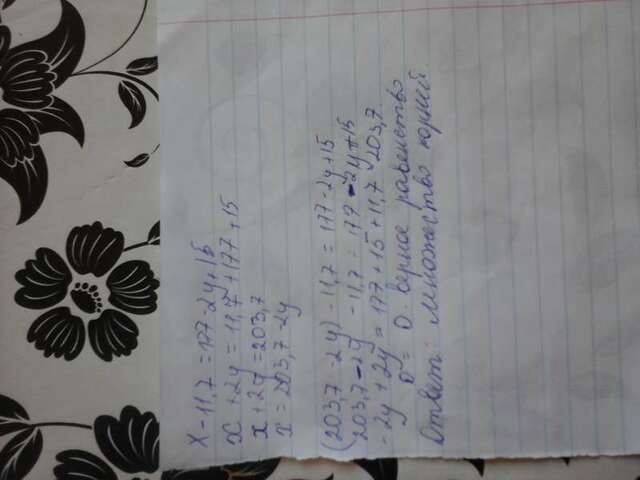 x - 11,7 = 177 - 2y + 15
x + 2y = 11,7 + 177 + 15
x + 2y = 203,7
x = 203,7 - 2y
(203,7 - 2y) - 11,7 = 177 - 2y + 15
203,7 - 2y - 11,7 = 177 - 2y + 15
- 2y + 2y = 177 + 15 + 11,7 - 203,7
0 = 0 - верное равенство
Ответ: множество корней.